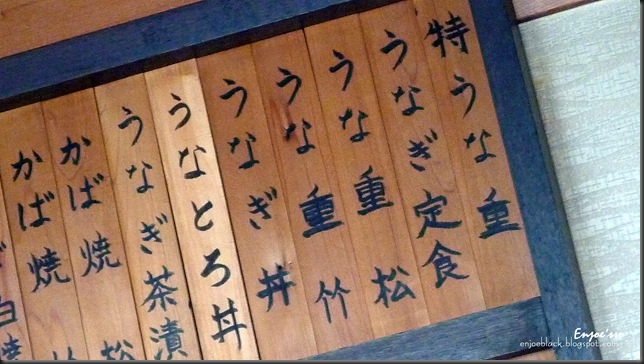 特うな重
うなぎ定食
うな重 松
うな重 竹
うなぎ丼
うなとろ丼
うなぎ茶漬
かば焼 松
かば焼
Enjoe'sso
enjoeblack.blogspot.com